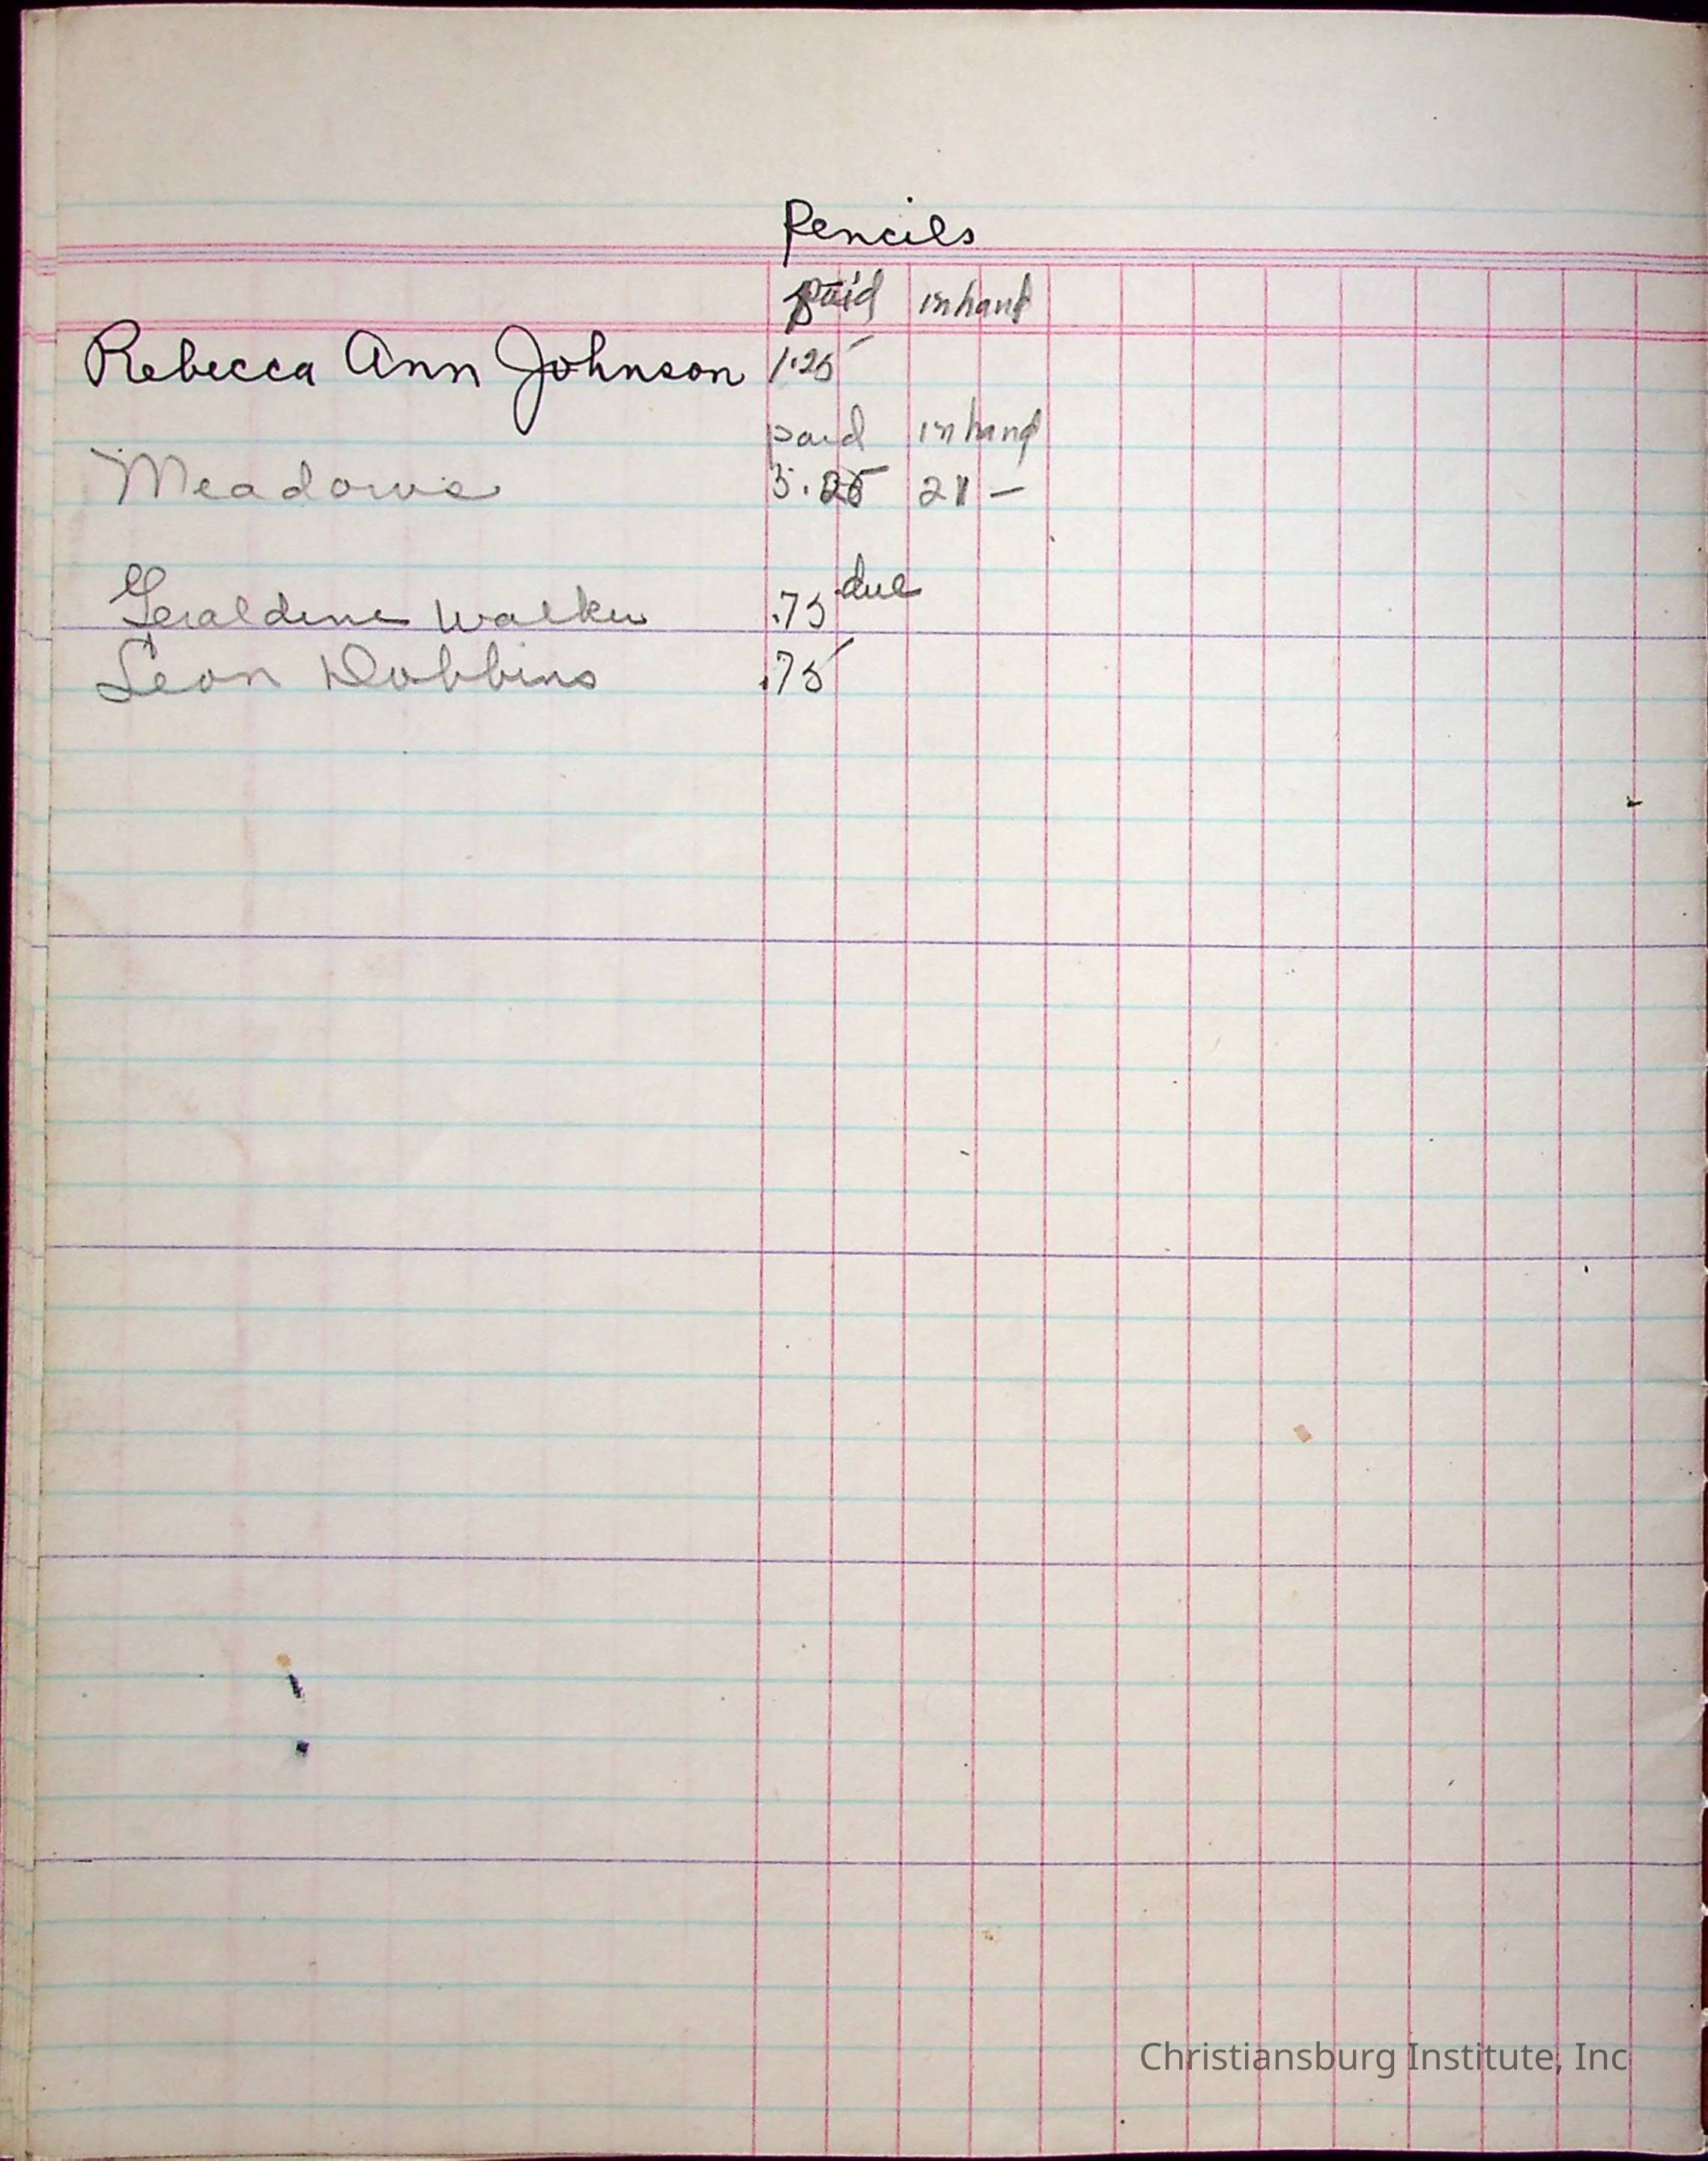 Pencils
paid in hand
Rebecca Ann Johnson 1.25
paid in hand
Meadows 21 —
Geraldine Walker .75 due
Leon Dobbins .75
Christiansburg Institute, Inc